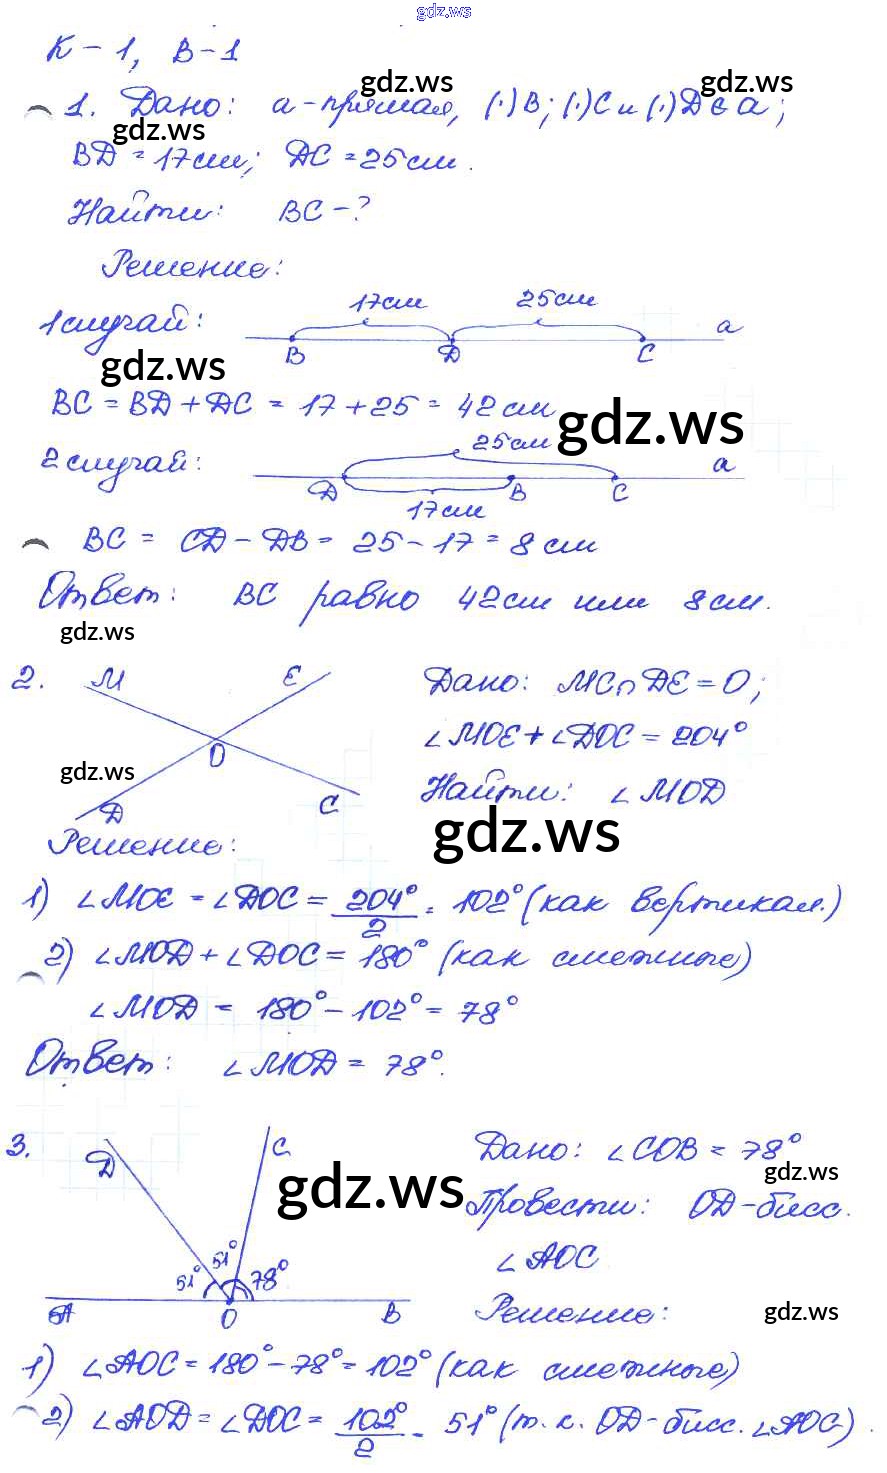 gdz.ws
К-1, В-1
1. Дано: а-прямая, (·)В; (·)С и (·)D ∈ а;
gdz.ws gdz.ws
gdz.ws
BD = 17см; DC = 25см.
Найти: ВС-?
Решение:
1 случай: 17см 25см а
В D С
gdz.ws
ВС = BD + DC = 17 + 25 = 42 см
gdz.ws
2 случай: 25см а
D В С
17см
ВС = CD - DB = 25 - 17 = 8 см
Ответ: ВС равно 42см или 8см.
gdz.ws
2. М Е Дано: МС∩DE = О;
О ∠МОЕ + ∠DOC = 204°
gdz.ws
D С Найти: ∠MOD
gdz.ws
Решение:
1) ∠МОЕ = ∠DOC = 204°/2 = 102° (как вертикал.)
2) ∠MOD + ∠DOC = 180° (как смежные)
∠MOD = 180° - 102° = 78°
Ответ: ∠MOD = 78°.
3. D С Дано: ∠СОВ = 78°
gdz.ws gdz.ws
Провести: OD-бисс.
∠АОС
51° 51° 78°
А О В Решение:
gdz.ws
1) ∠АОС = 180° - 78° = 102° (как смежные)
2) ∠AOD = ∠DOC = 102°/2 = 51° (т.к. OD-бисс. ∠АОС)